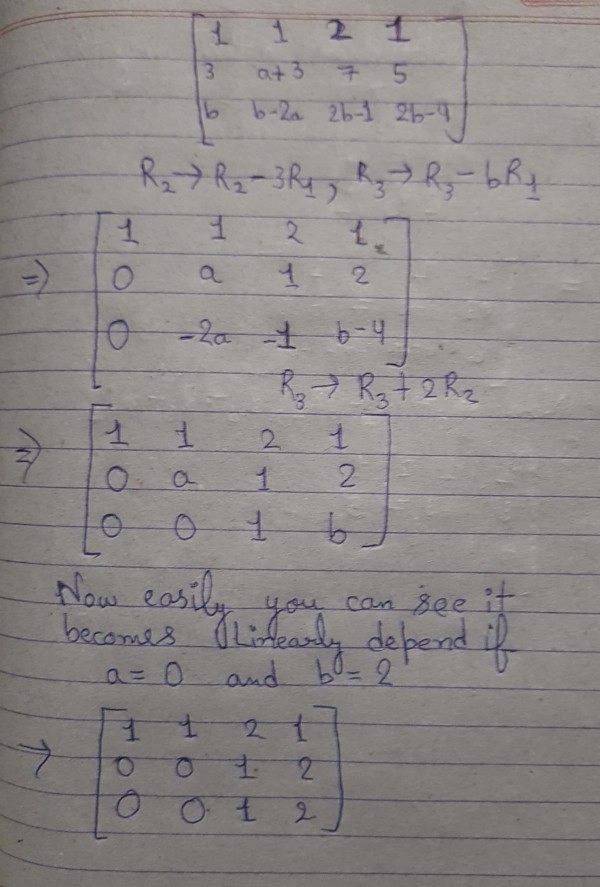 1 1 2 1
3 a+3 7 5
b b-2a 2b-1 2b-4
R₂→R₂-3R₁, R₃→R₃-bR₁
1 1 2 1
⇒ 0 a 1 2
0 -2a -1 b-4
R₃→R₃+2R₂
⇒ 1 1 2 1
0 a 1 2
0 0 1 b
Now easily you can see it
becomes linearly depend if
a=0 and b=2
→ 1 1 2 1
0 0 1 2
0 0 1 2